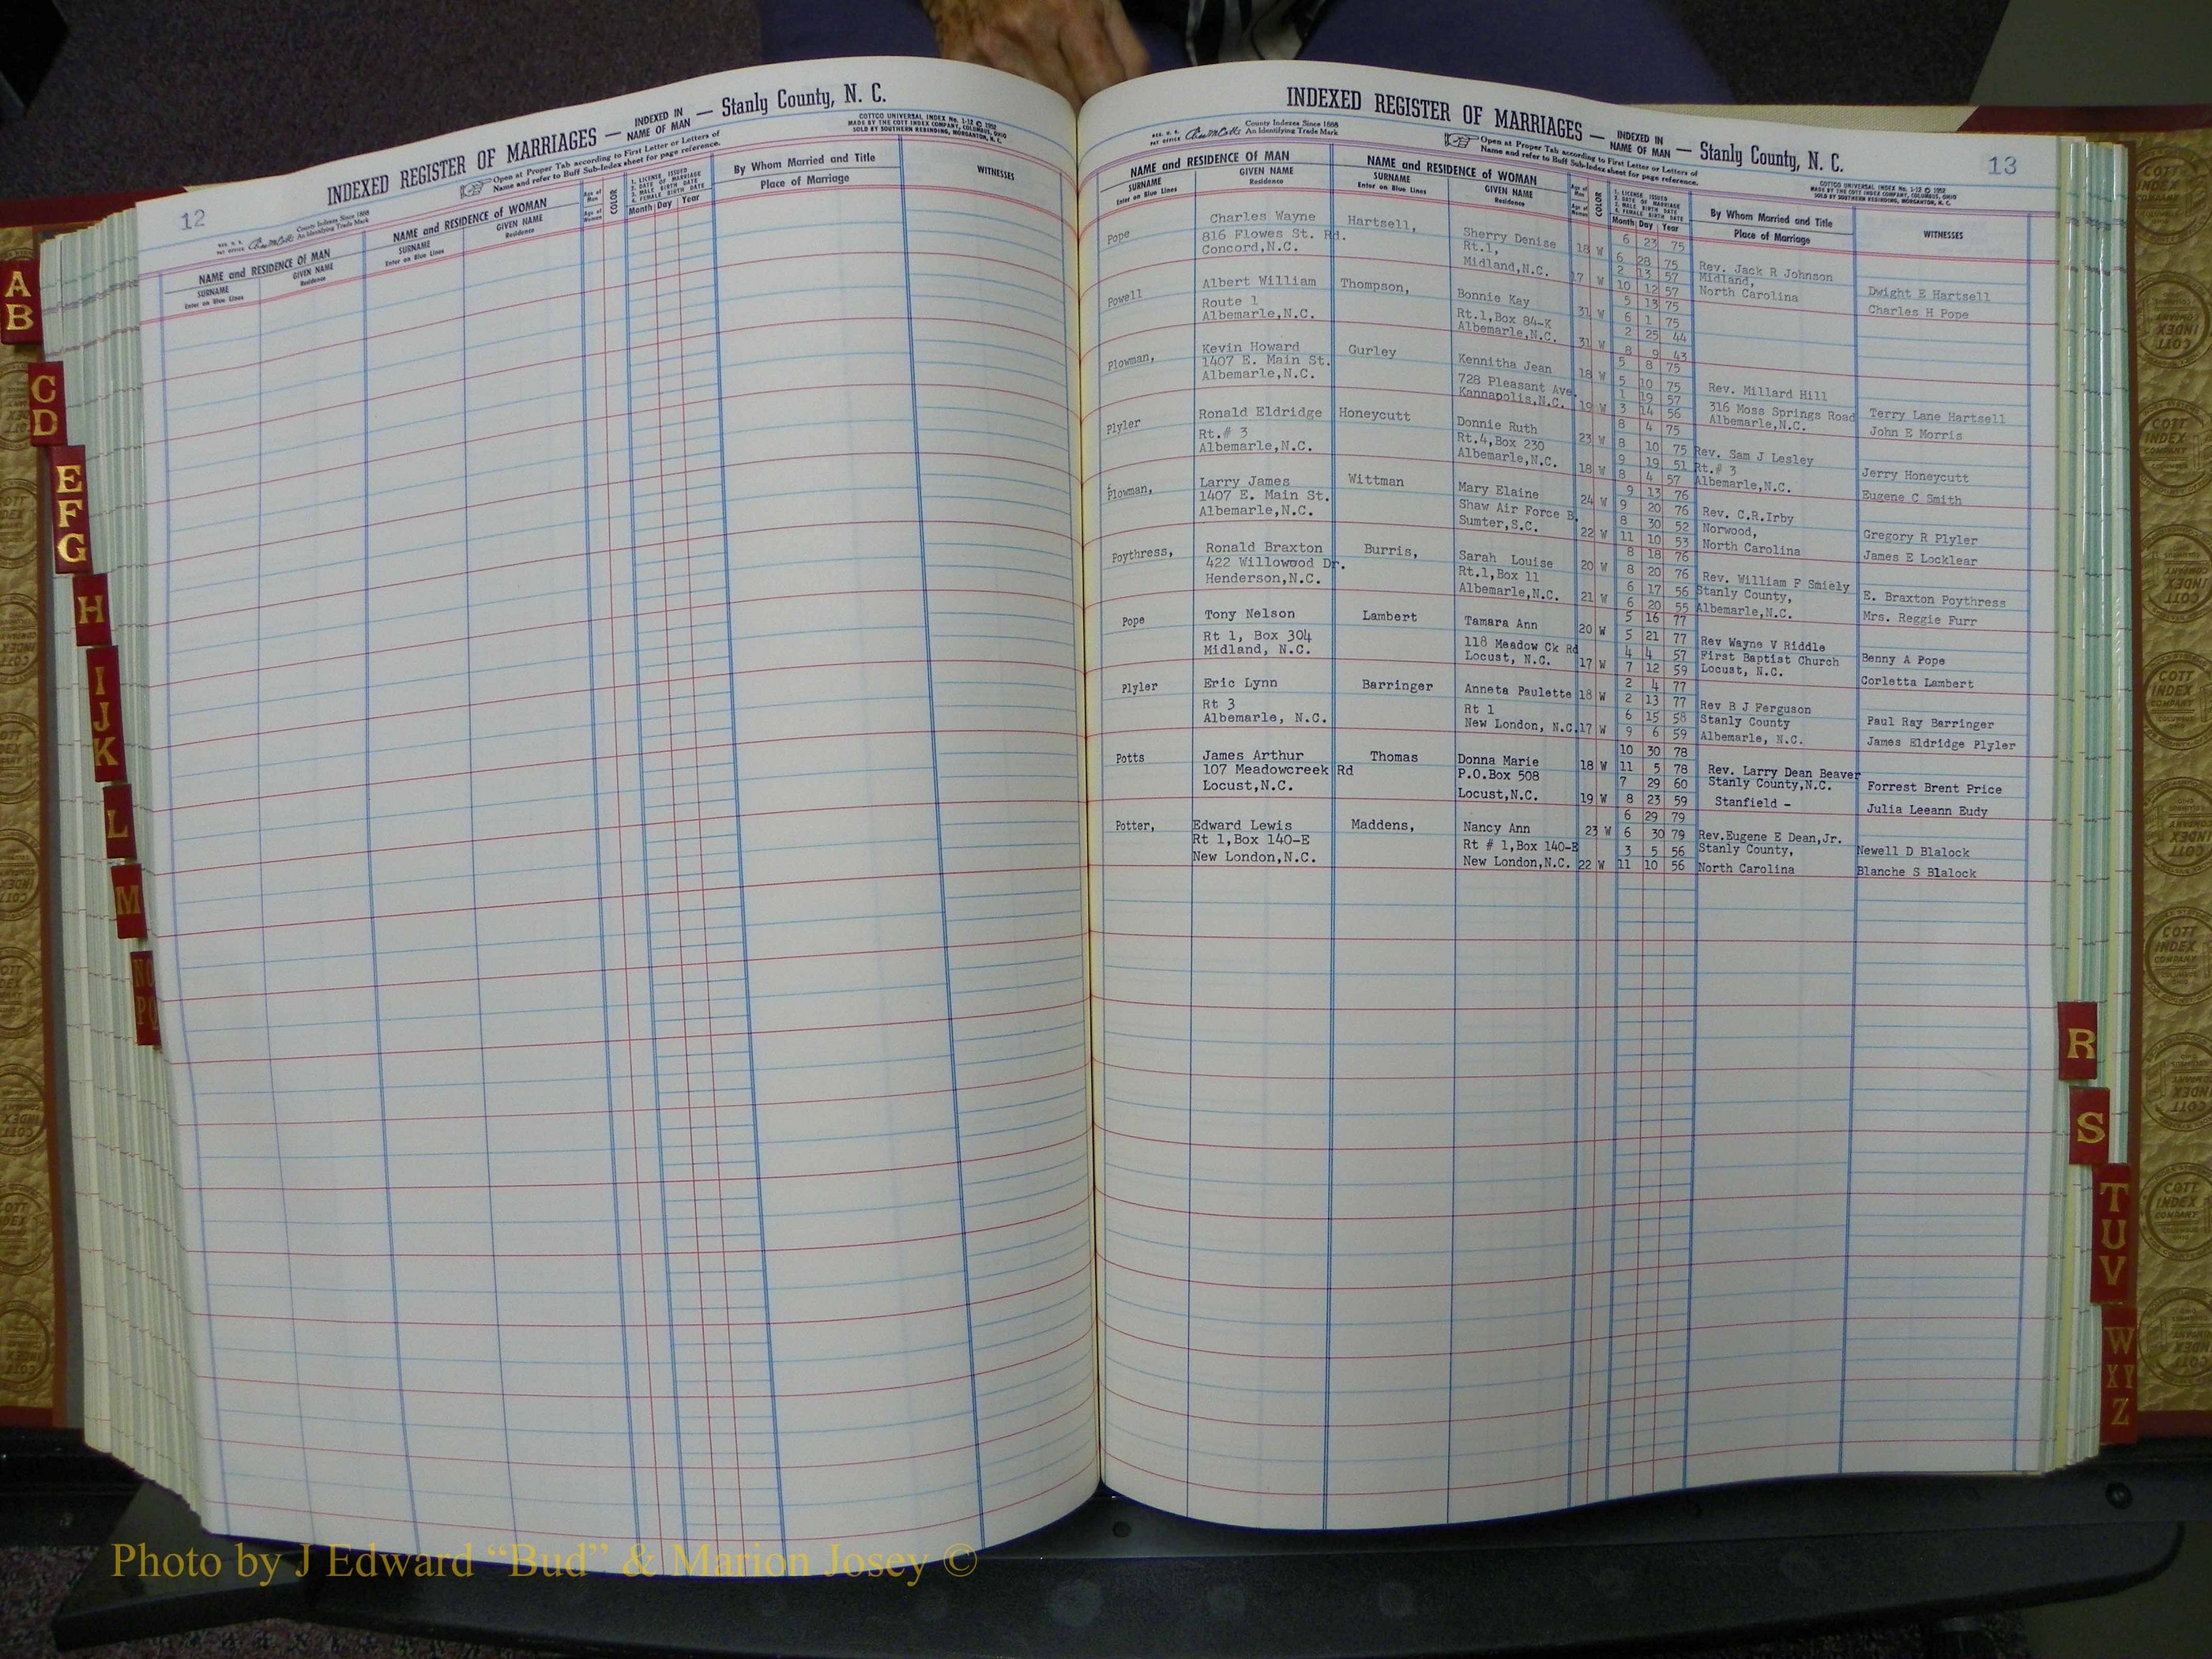 12
INDEXED REGISTER OF MARRIAGES — INDEXED IN NAME OF MAN — Stanly County, N. C.
County Indexes Since 1888
An Identifying Trade Mark
Open at Proper Tab according to First Letter or Letters of
Name and refer to Buff Sub-Index sheet for page reference.
COTTCO UNIVERSAL INDEX No. 1-12 © 1952
MADE BY THE COTT INDEX COMPANY, COLUMBUS, OHIO
SOLD BY SOUTHERN REBINDING, MORGANTON, N. C.
NAME and RESIDENCE OF MAN
SURNAME
Enter on Blue Lines
GIVEN NAME
Residence
NAME and RESIDENCE OF WOMAN
SURNAME
Enter on Blue Lines
GIVEN NAME
Residence
Age of Man
Age of Woman
COLOR
1. LICENSE ISSUED
2. DATE OF MARRIAGE
3. MALE BIRTH DATE
4. FEMALE BIRTH DATE
Month Day Year
By Whom Married and Title
Place of Marriage
WITNESSES
INDEXED REGISTER OF MARRIAGES — INDEXED IN NAME OF MAN — Stanly County, N. C.
13
County Indexes Since 1888
An Identifying Trade Mark
Open at Proper Tab according to First Letter or Letters of
Name and refer to Buff Sub-Index sheet for page reference.
COTTCO UNIVERSAL INDEX No. 1-12 © 1952
MADE BY THE COTT INDEX COMPANY, COLUMBUS, OHIO
SOLD BY SOUTHERN REBINDING, MORGANTON, N. C.
NAME and RESIDENCE OF MAN
SURNAME
Enter on Blue Lines
GIVEN NAME
Residence
NAME and RESIDENCE OF WOMAN
SURNAME
Enter on Blue Lines
GIVEN NAME
Residence
Age of Man
Age of Woman
COLOR
1. LICENSE ISSUED
2. DATE OF MARRIAGE
3. MALE BIRTH DATE
4. FEMALE BIRTH DATE
Month Day Year
By Whom Married and Title
Place of Marriage
WITNESSES
Pope Charles Wayne Hartsell, Sherry Denise 18 W 6 23 75
816 Flowes St. Rd. Rt.1, 6 28 75 Rev. Jack R Johnson
Concord,N.C. Midland,N.C. 17 W 2 13 57 Midland, Dwight E Hartsell
10 12 57 North Carolina Charles H Pope
Powell Albert William Thompson, Bonnie Kay 31 W 5 13 75
Route 1 Rt.1,Box 84-K 6 1 75
Albemarle,N.C. Albemarle,N.C. 31 W 2 25 44
8 9 43
Plowman, Kevin Howard Gurley Kennitha Jean 18 W 5 8 75
1407 E. Main St. 728 Pleasant Ave. 5 10 75 Rev. Millard Hill
Albemarle,N.C. Kannapolis,N.C. 19 W 1 19 57 316 Moss Springs Road Terry Lane Hartsell
3 14 56 Albemarle,N.C. John E Morris
Plyler Ronald Eldridge Honeycutt Donnie Ruth 23 W 8 4 75
Rt.# 3 Rt.4,Box 230 8 10 75 Rev. Sam J Lesley
Albemarle,N.C. Albemarle,N.C. 18 W 9 19 51 Rt.# 3 Jerry Honeycutt
8 4 57 Albemarle,N.C. Eugene C Smith
Plowman, Larry James Wittman Mary Elaine 24 W 9 13 76
1407 E. Main St. Shaw Air Force B. 9 20 76 Rev. C.R.Irby
Albemarle,N.C. Sumter,S.C. 22 W 8 30 52 Norwood, Gregory R Plyler
11 10 53 North Carolina James E Locklear
Poythress, Ronald Braxton Burris, Sarah Louise 20 W 8 18 76
422 Willowood Dr. Rt.1,Box 11 8 20 76 Rev. William F Smiely
Henderson,N.C. Albemarle,N.C. 21 W 6 17 56 Stanly County, E. Braxton Poythress
6 20 55 Albemarle,N.C. Mrs. Reggie Furr
Pope Tony Nelson Lambert Tamara Ann 20 W 5 16 77
Rt 1, Box 304 118 Meadow Ck Rd 5 21 77 Rev Wayne V Riddle
Midland, N.C. Locust, N.C. 17 W 4 4 57 First Baptist Church Benny A Pope
7 12 59 Locust, N.C. Corletta Lambert
Plyler Eric Lynn Barringer Anneta Paulette 18 W 2 4 77
Rt 3 Rt 1 2 13 77 Rev B J Ferguson
Albemarle, N.C. New London, N.C. 17 W 6 15 58 Stanly County Paul Ray Barringer
9 6 59 Albemarle, N.C. James Eldridge Plyler
Potts James Arthur Thomas Donna Marie 18 W 10 30 78
107 Meadowcreek Rd P.O.Box 508 11 5 78 Rev. Larry Dean Beaver
Locust,N.C. Locust,N.C. 19 W 7 29 60 Stanly County,N.C. Forrest Brent Price
8 23 59 Stanfield - Julia Leeann Eudy
Potter, Edward Lewis Maddens, Nancy Ann 23 W 6 29 79
Rt 1,Box 140-E Rt # 1,Box 140-E 6 30 79 Rev.Eugene E Dean,Jr.
New London,N.C. New London,N.C. 22 W 3 5 56 Stanly County, Newell D Blalock
11 10 56 North Carolina Blanche S Blalock
A B
C D
E F G
H
I J K
L
M
NO PQ
R
S
T U V
W XY Z
COTT INDEX COMPANY
Photo by J Edward “Bud” & Marion Josey ©